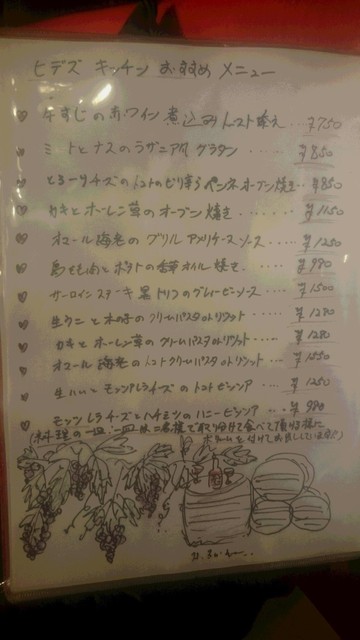 ヒデズ キッチン おすすめ メニュー
♡ 牛すじの赤ワイン煮込み トースト添え … ¥750
♡ ミートとナスのラザニア風グラタン … ¥850
♡ とろーりチーズのトマトのピリ辛ペンネオーブン焼き ¥850
♡ カキとホーレン草のオーブン焼き …… ¥1150
♡ オマール海老のグリル アメリケーヌソース …… ¥1250
♡ 鳥もも肉とポテトの香草オイル焼き …… ¥980
♡ サーロインステーキ 黒トリフのグレービーソース … ¥1500
♡ 生ウニと木の子のクリームパスタorリゾット … ¥1280
♡ カキとホーレン草のクリームパスタorリゾット … ¥1280
♡ オマール海老のトマトクリームパスタorリゾット … ¥1350
♡ 生ハムとモッツァレラチーズのトマトピッツア … ¥1250
♡ モッツァレラチーズとハチミツのハニーピッツア … ¥980
(料理の一皿一皿は二名様で取り分け食べて頂ける様に
ボリュームを付けてお出ししています)